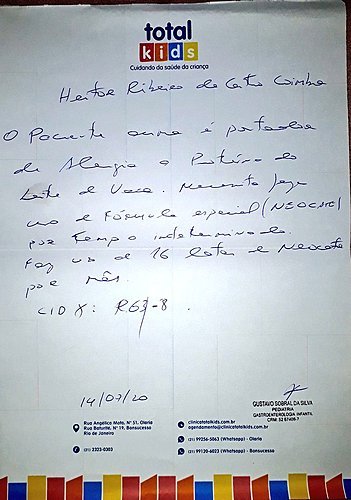 total
kids
Cuidando da saúde da criança
Heitor Ribeiro de Coimbra
O Paciente acima é portador
de Alergia a Proteína do
Leite de Vaca. Necessita fazer
uso de Fórmula especial (NEOCATE)
por tempo indeterminado.
Faz uso de 16 latas de Neocate
por mês.
CID X: R63-8.
14/07/20
GUSTAVO SOBRAL DA SILVA
PEDIATRIA
GASTROENTEROLOGIA INFANTIL
Rua Angélica Mota, Nº 51. Olaria
Rua Baturité, Nº 19. Bonsucesso
Rio de Janeiro
(21) 2323-0303
clinicatotalkids.com.br
agendamento@clinicatotalkids.com.br
(21) 99256-5063 (Whatsapp) - Olaria
(21) 99120-6023 (Whatsapp) - Bonsucesso